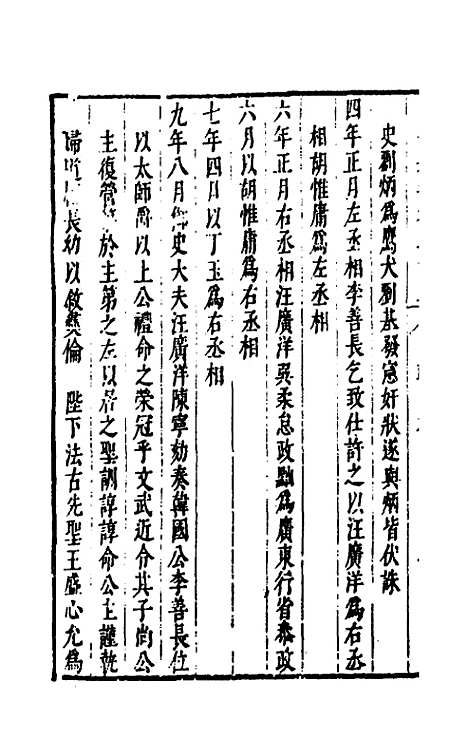 史劉炳為鷹犬劉基發憲奸狀遂與炳皆伏誅
四年正月左丞相李善長乞致仕許之以汪廣洋為右丞
相胡惟庸為左丞相
六年正月右丞相汪廣洋巽柔怠政黜為廣東行省叅政
六月以胡惟庸為右丞相
七年四月以丁玉為右丞相
九年八月御史大夫汪廣洋陳寧劾奏韓國公李善長位
以太師爵以上公禮命之榮冠乎文武近令其子尚公
主復營於主第之左以居之聖訓諄諄命公主謹執
婦道長幼以敘彝倫 陛下法古先聖王盛心允為